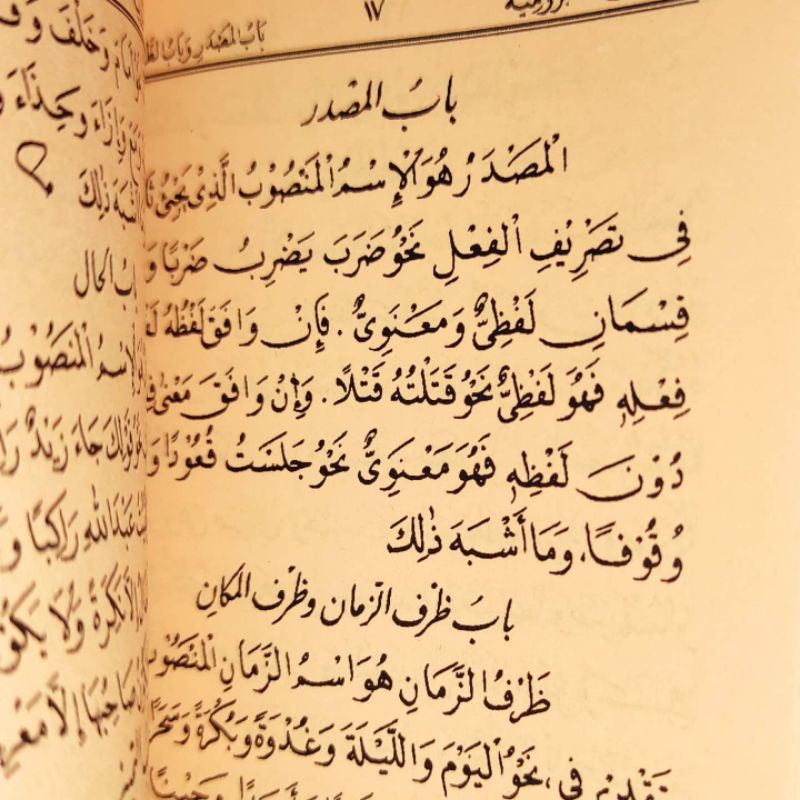 ١٧
باب المصدر وباب
بَابُ المصْدر
الْمَصْدَرُ هُوَ الْإِسْمُ الْمَنْصُوْبُ الَّذِىْ يَجِىْءُ
فِى تَصْرِيْفِ الْفِعْلِ نَحْوُ ضَرَبَ يَضْرِبُ ضَرْبًا وَ
قِسْمَانِ لَفْظِىٌّ وَمَعْنَوِىٌّ . فَإِنْ وَافَقَ لَفْظُهُ
فِعْلِهِ فَهُوَ لَفْظِىٌّ نَحْوُ قَتَلْتُهُ قَتْلًا . وَإِنْ وَافَقَ مَعْنَى
دُوْنَ لَفْظِهِ فَهُوَ مَعْنَوِىٌّ نَحْوُ جَلَسْتُ قُعُوْدًا وَ
وُقُوْفًا، وَمَا أَشْبَهَ ذٰلِكَ
بابَ ظرْف الزمان وظرْف المكانِ
ظَرْفُ الزَّمَانِ هُوَ اسْمُ الزَّمَانِ الْمَنْصُوْبُ
فِى، نَحْوُ الْيَوْمَ وَاللَّيْلَةَ وَغُدْوَةً وَبُكْرَةً وَسَحَرًا
وَخَلْفَ
وَإِزَاءَ وَحِذَاءَ
ذٰلِكَ
باب الحال
الْإِسْمُ الْمَنْصُوْبُ
جَاءَ زَيْدٌ
عَبْدَ اللهِ رَاكِبًا وَ
نَكِرَةً وَلَا
صَاحِبُهَا إِلَّا مَعْرِفَةً